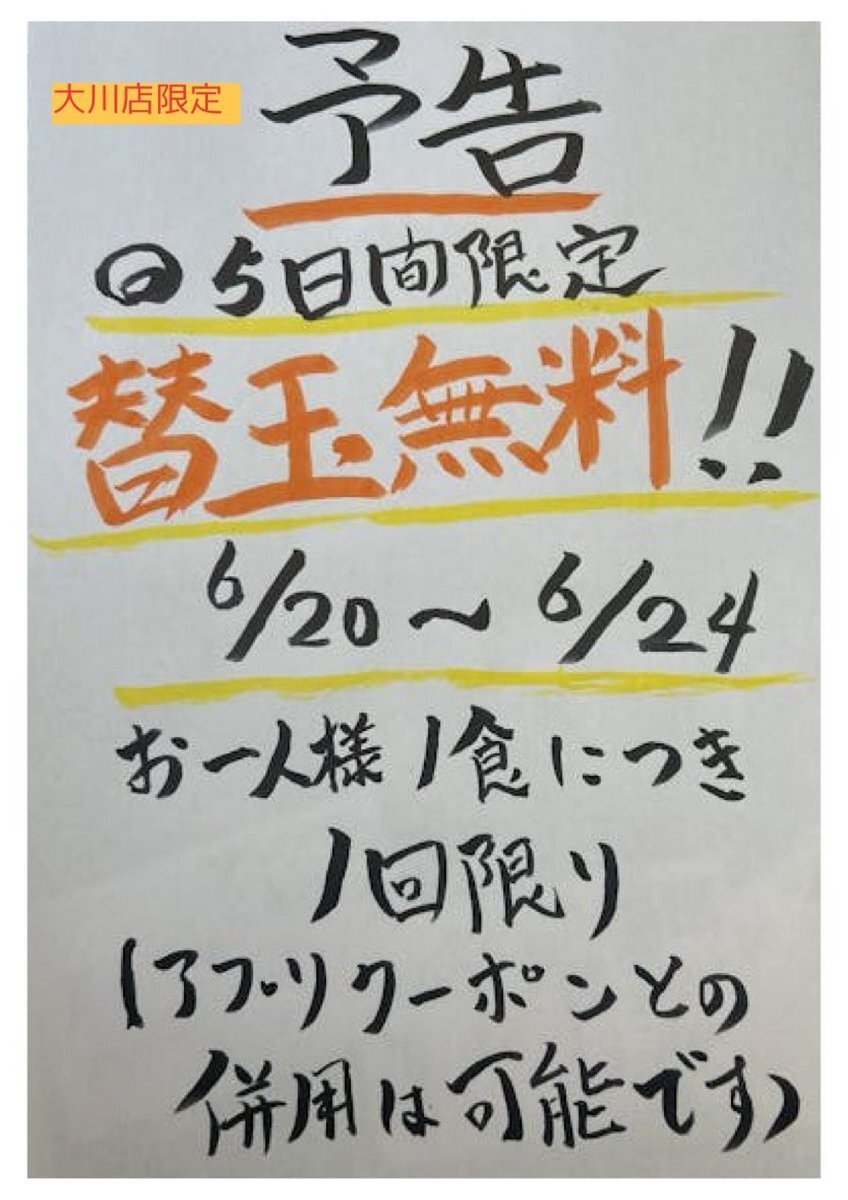 大川店限定
予告
◎5日間限定
替玉無料!!
6/20〜6/24
お一人様1食につき
1回限り
(アプリクーポンとの
併用は可能です)